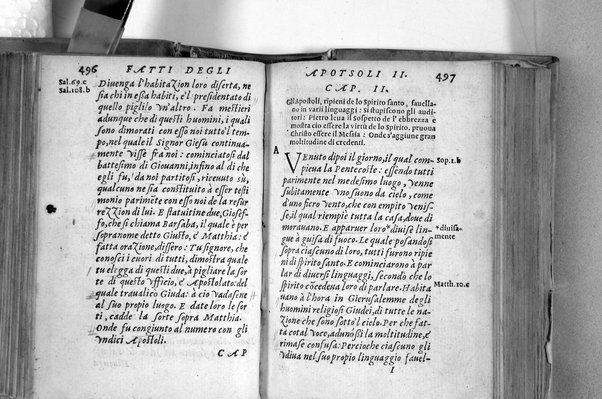 496 FATTI DEGLI
Sal.69.c
Sal.108.b
Diuenga l'habitazion loro diserta, ne
sia chi in essa habiti, e'l presidentato di
quello piglilo vn'altro. Fa mestieri
adunque che di questi huomini, i quali
sono dimorati con esso noi tutto'l tem-
po, nel quale il Signor Giesù continua-
mente visse fra noi: cominciatosi dal
battesimo di Giouanni, infino al dì che
egli fu, da noi partitosi, riceuuto su,
qualcuno ne sia constituito à esser testi
monio parimẽte con esso noi de la resur
rezzion di lui. E statuitine due, Giosef-
fo, che si chiama Barsaba, il quale è per
sopranome detto Giusto, e Matthia: e
fatta orazione, dissero: Tu signore, che
conosci i cuori di tutti, dimostra quale
tu elegga di questi due, à pigliare la sor
te di questo vfficio, e Apostolato: del
quale trauallicò Giuda: à ciò vadasene
al suo proprio luogo. E date loro le sor
ti, cadde la sorte sopra Matthia.
Onde fu congiunto al numero con gli
vndici Apostoli.
CAP
APOTSOLI II. 497
CAP. II.
Gli apostoli, ripieni de lo Spirito santo, fauella-
no in varii linguaggi: Si stupiscono gli audi-
tori: Pietro leua il sospetto de l'ebbrezza e
mostra ciò essere la virtù de lo Spirito, pruoua
Christo essere il Messia: Onde s'aggiune gran
moltitudine di credenti.
A
VEnuto dipoi il giorno, il qual com-
piena la Pentecoste: essendo tutti
parimente nel medesimo luogo, venne
subitamente vno suono da cielo, come
d'uno fiero vento, che con empito venis-
se, il qual riempiè tutta la casa, doue di
morauano. E apparuer loro *diuise lin-
gue à guisa di fuoco. Le quale posandosi
sopra ciascuno di loro, tutti furono ripie
ni di spirito santo. E cominciarono à par
lar di diuersi linguaggi, secondo che lo
spirito cõcedeua loro di parlare. Habita
uano à l'hora in Gierusalemme degli
huomini religiosi Giudei, di tutte le na-
zione che sono sotto'l cielo. Per che fat-
ta cotal voce, adunossi la moltitudine, e
rimase confusa: Percioche ciascuno gli
vdiua nel suo proprio linguaggio fauel-
I
Sop.1.b
*diuisa-
mente
Matth.10.c